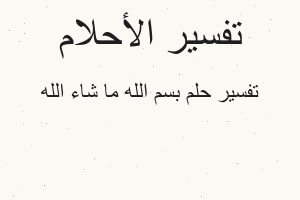 تفسير الأحلام
تفسير حلم بسم الله ما شاء الله